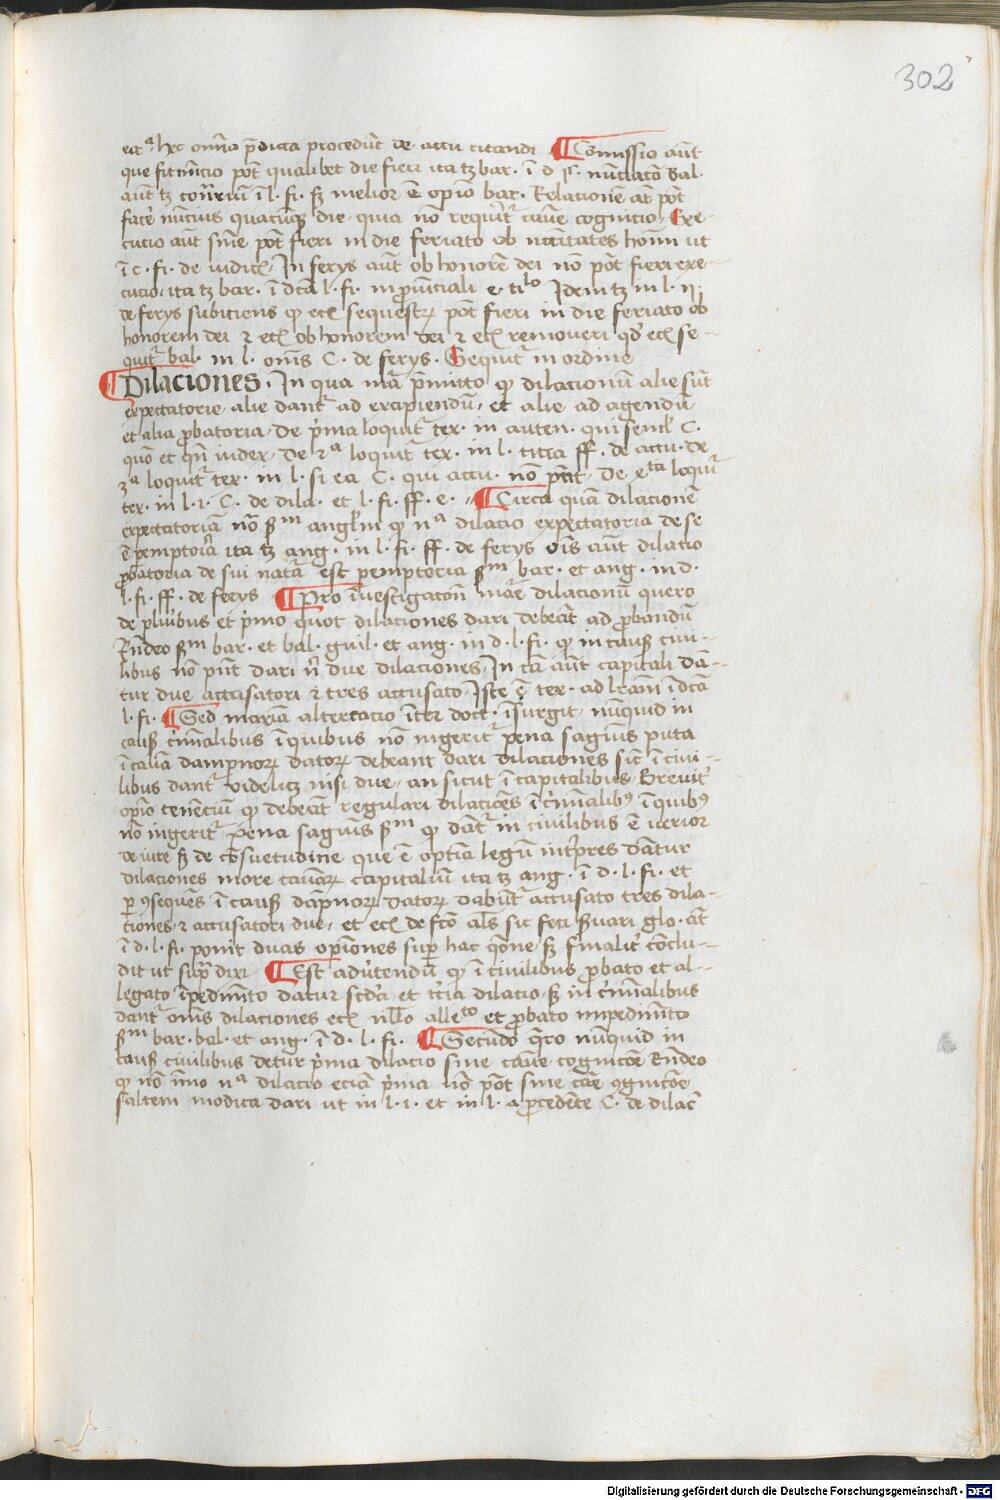 302
hec om̄ia p̄dicta procedūt de actu citandi ¶ Cōmissio aūt
que fit nūncio pōt qualibet die fieri ita tꝫ bar. ī d. nūctiatō bal.
aūt tꝫ cōtr̄riū ī l. fi. sꝫ melior ē opīo bar. Relationē at̄ pōt
facē nūncius quacūqꝫ die quia nō requir̄it cāe cognicio. Exe-
cucio aūt sine pōt fieri in die feriato ob nēcitates hoīm ut
ī c. fi. de iudicꝭ. In ferys aūt ob honorē dei nō pōt fieri exe-
cucio ita tꝫ bar. ī dc̄a l. fi. in proūinciali e. tilo Idem tꝫ in l. ii.
de ferys subiciens ꝙ ecꝭ sequestrꝫ pōt fieri in die feriato ob
honorem dei ⁊ ecꝭ ob honorem dei ⁊ ecꝭ remoueri qd̓ ecꝭ se-
quit̄ bal. in l. om̄is C. de ferys. Sequit̄ in ordine
¶ Dilaciones. In qua mā p̄mitto ꝙ dilacionū alie sūt
expectatorie alie dant̄ ad excipiendū et alie ad agendū
et alia ꝓbatoria. de p̓ma loquit̄ tex. in auten. qui semel C.
quō et qn̄ iudex. de 2a loquit̄ tex. in l. titia ff. de accu. de
3a loquit̄ tex. in l. si ea C. qui accu. nō p̄nt. De loquit̄
tex. in l. i. C. de dila. et l. fi. ff. e. ¶ Circa quā dilacionē
expectatoriā nō ꝙ dilacio expectatoria de se
ē ꝑemptoria ita tꝫ ang. in l. fi. ff. de ferys om̄is aūt dilacio
ꝓbatoria de sui natā est ꝑemptoria sm bar. et ang. in d.
l. fi. ff. de ferys ¶ Pro īuestigatōn māe dilacionū quero
de plibus et p̓mo quot dilaciones dari debeāt ad ꝓbandū
Rn̄deo sm bar. et bal. guil. et ang. in d. l. fi. ꝙ in causꝭ ciui-
libus nō pn̄t dari n̄ due dilaciones. In cā aūt capitali dā-
tur due accusatori ⁊ tres accusato. Iste ē tex. ad lr̄am ī dc̄a
l. fi. ¶ Sed maxīa altercatio īter doct. īsurgit nūnquid in
causꝭ c̓mīalibus ī quibus nō ingerit̄ pena sagūis puta
ī causa dampnorꝫ datorꝫ debeant dari dilaciones sic̄ ī ciui-
libus dant̄ videlicꝫ nisi due an sicut ī capitalibus. Breuit̓
opīo tenenciū ꝙ debeāt regulari dilaciōes ī c̓mīalibꝰ ī quibꝰ
nō ingerit̄ pena sagūis sm ꝙ dāt̄ in ciuilibus ē verior
de iure sꝫ de cōsuetudine que ē optīa legū int̓pres dātur
dilaciones more cāarꝫ capitaliū ita tꝫ ang. ī d. l. fi. et
ꝑ ꝯsequēs ī causꝭ dāpnorꝫ datorꝫ dabūt̄ accusato tres dila-
tiones ⁊ accusatori due, et ecꝭ de fc̄o als sic feci ẜuari glo. at̄
ī d. l. fi. ponit duas opīones suꝑ hac q̄one sꝫ finalit̓ cōclu-
dit ut sup̄ dixi ¶ Est adu̓tendū ꝙ ī ciuilibus ꝓbato et al-
legato īpedimēto datur scd̓a et tc̓ia dilacio sꝫ in c̓mīalibus
dant̄ om̄is dilaciones ecꝭ nllo alleto et ꝓbato impedimēto
sm bar. bal. et ang. ī d. l. fi. ¶ Secūdo q̄ro nūnquid in
causꝭ ciuilibus detur p̓ma dilacio sine cāe cognicōe Rn̄deo
ꝙ nō īmo na dilacio eciā p̓ma nō pōt sine cāe ꝯgnicōe
saltem modica dari ut in l. i. et in l. a ꝓcedēte C. de dilac̄
Digitalisierung gefördert durch die Deutsche Forschungsgemeinschaft - DFG